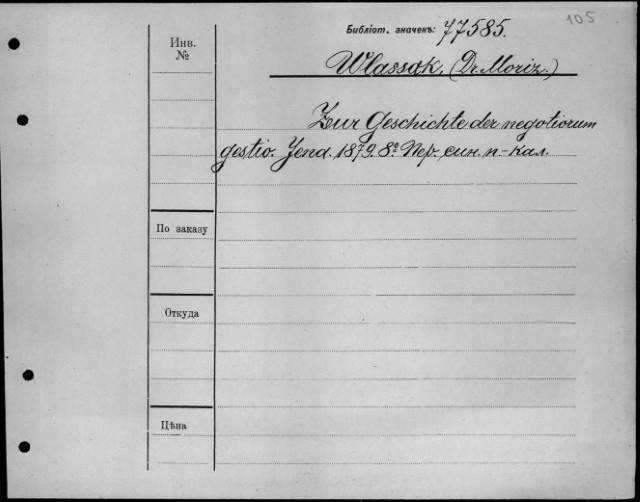 105
Библіот. значекъ: 77585.
Инв.
№
Wlassak, (Dr. Moriz.)
Zur Geschichte der negotiorum
gestio. Jena. 1879. 8º. Пер. син. п-кал.
По заказу
Откуда
Цѣна